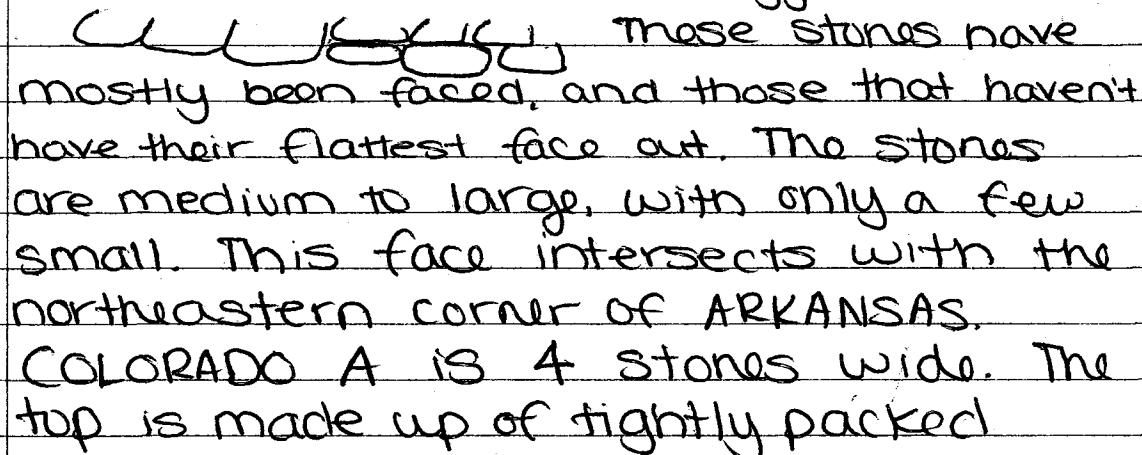 These stones have
mostly been faced, and those that haven't
have their flattest face out. The stones
are medium to large, with only a few
small. This face intersects with the
northeastern corner of ARKANSAS.
COLORADO A is 4 stones wide. The
top is made up of tightly packed